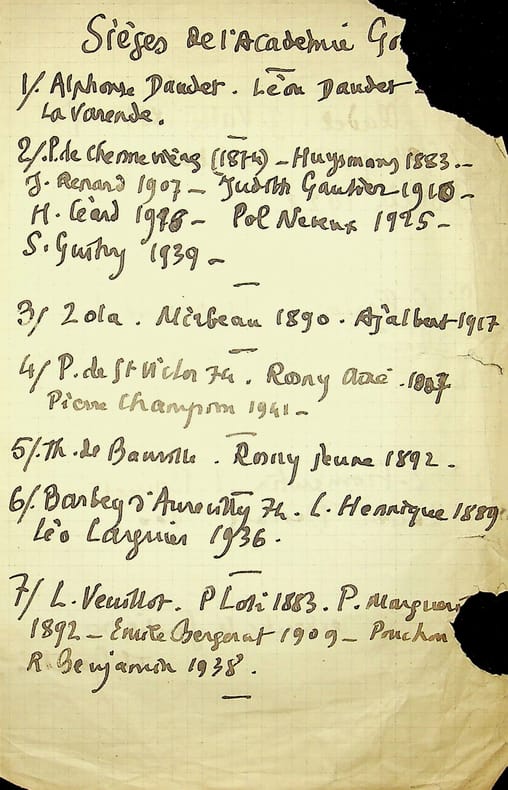 Sièges de l'Academie Go
1/. Alphonse Daudet. Léon Daudet
La Varende.
2/. P. de Chennevières (1874) – Huysmans 1883. –
J. Renard 1907 – Judith Gautier 1910 –
H. Céard 1918 – Pol Neveux 1925 –
S. Guitry 1939 –
3/ Zola. Mirbeau 1890. Ajalbert 1917
4/ P. de St Victor 74. Rosny aîné. 1887
Pierre Champion 1941 –
5/. Th. de Banville. Rosny jeune 1892.
6/. Barbey d'Aurevilly 74. L. Hennique 1889
Léo Larguier 1936.
7/ L. Veuillot. P Loti 1883. P. Margueri
1892 – Emile Bergerat 1909 – Ponchon
R. Benjamin 1938.